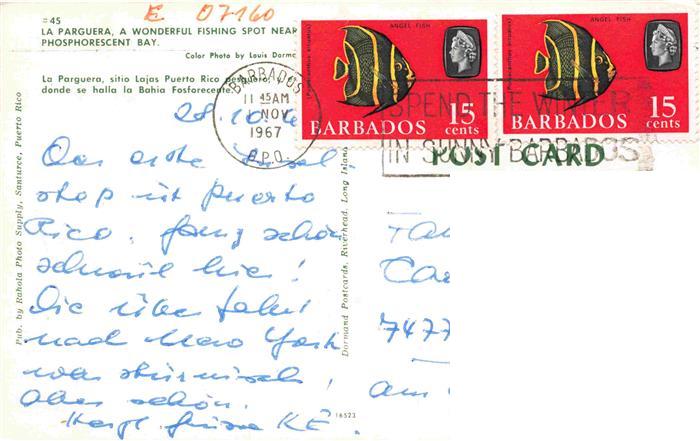 E 07160
#45
LA PARGUERA, A WONDERFUL FISHING SPOT NEAR
PHOSPHORESCENT BAY.
Color Photo by Louis Dormc
La Parguera, sitio Lajas Puerto Rico pesquero,
donde se halla la Bahia Fosforecente.
BARBADOS
11 45AM
1 NOV
1967
G.P.O.
ANGEL FISH
15
cents
BARBADOS
ANGEL FISH
15
cents
BARBADOS
SPEND THE WINTER
IN SUNNY BARBADOS
POST CARD
28.10.
Das erste Insel-
stop ist Puerto
Rico. Ganz schön
schwül hier!
Die Überfahrt
nach New York
war stürmisch,
aber schön.
Herzl. Grüsse KE
Pub. by Rahola Photo Supply, Santurce, Puerto Rico
Dormand Postcards, Riverhead, Long Island
16523
Fam
Car
7477
am